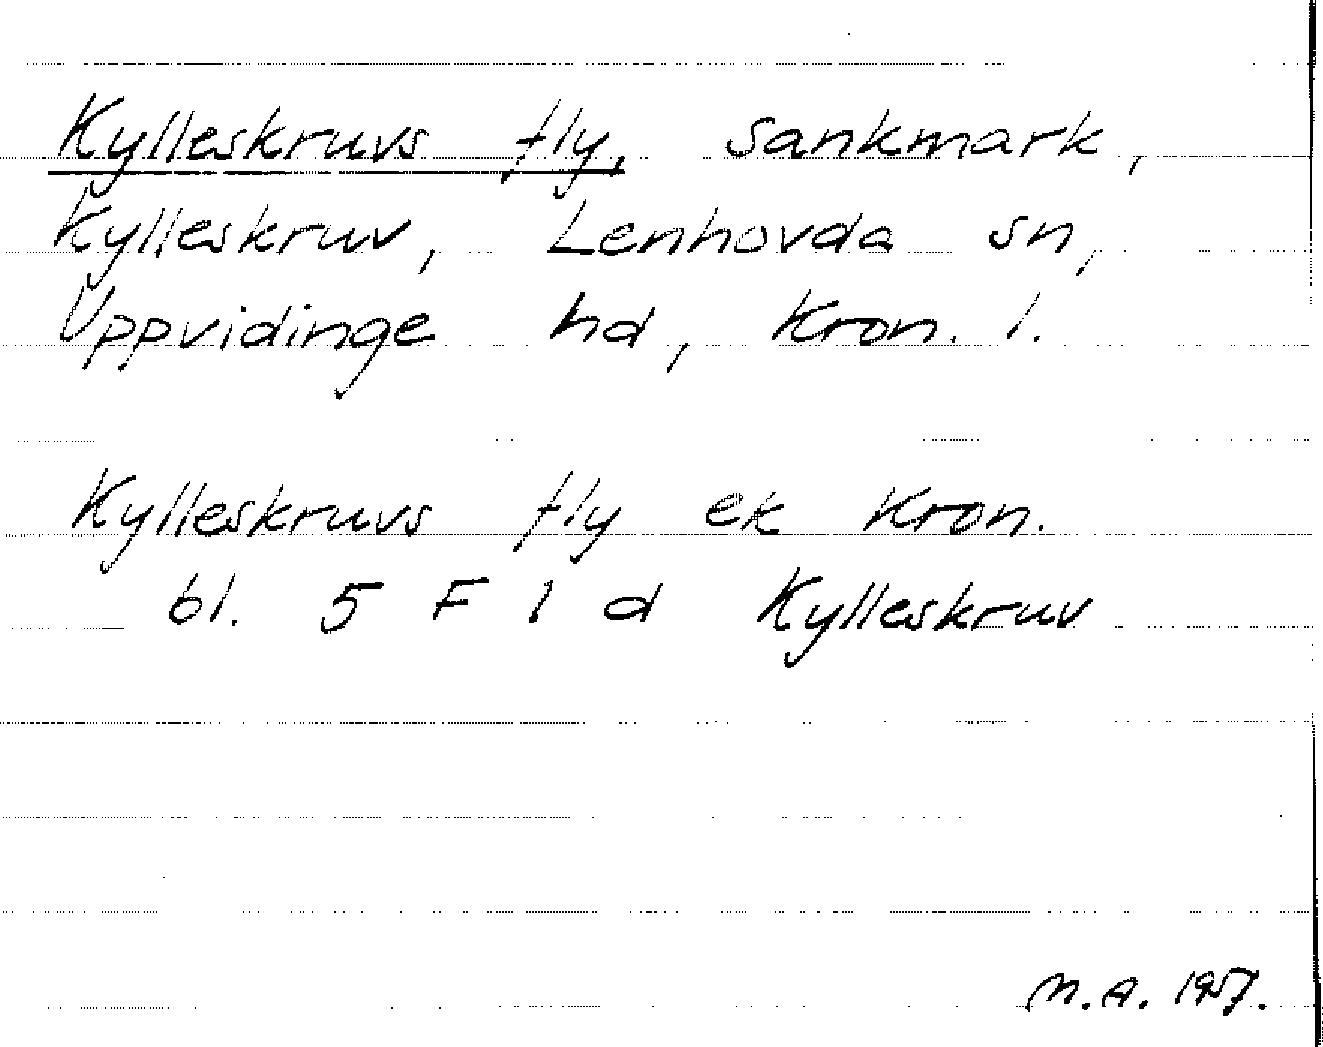 Kylleskruvs fly, sankmark,
Kylleskruv, Lenhovda sn,
Uppvidinge hd, Kron. l.
Kylleskruvs fly ek Kron.
bl. 5 F 1 d Kylleskruv
M.A. 1957.